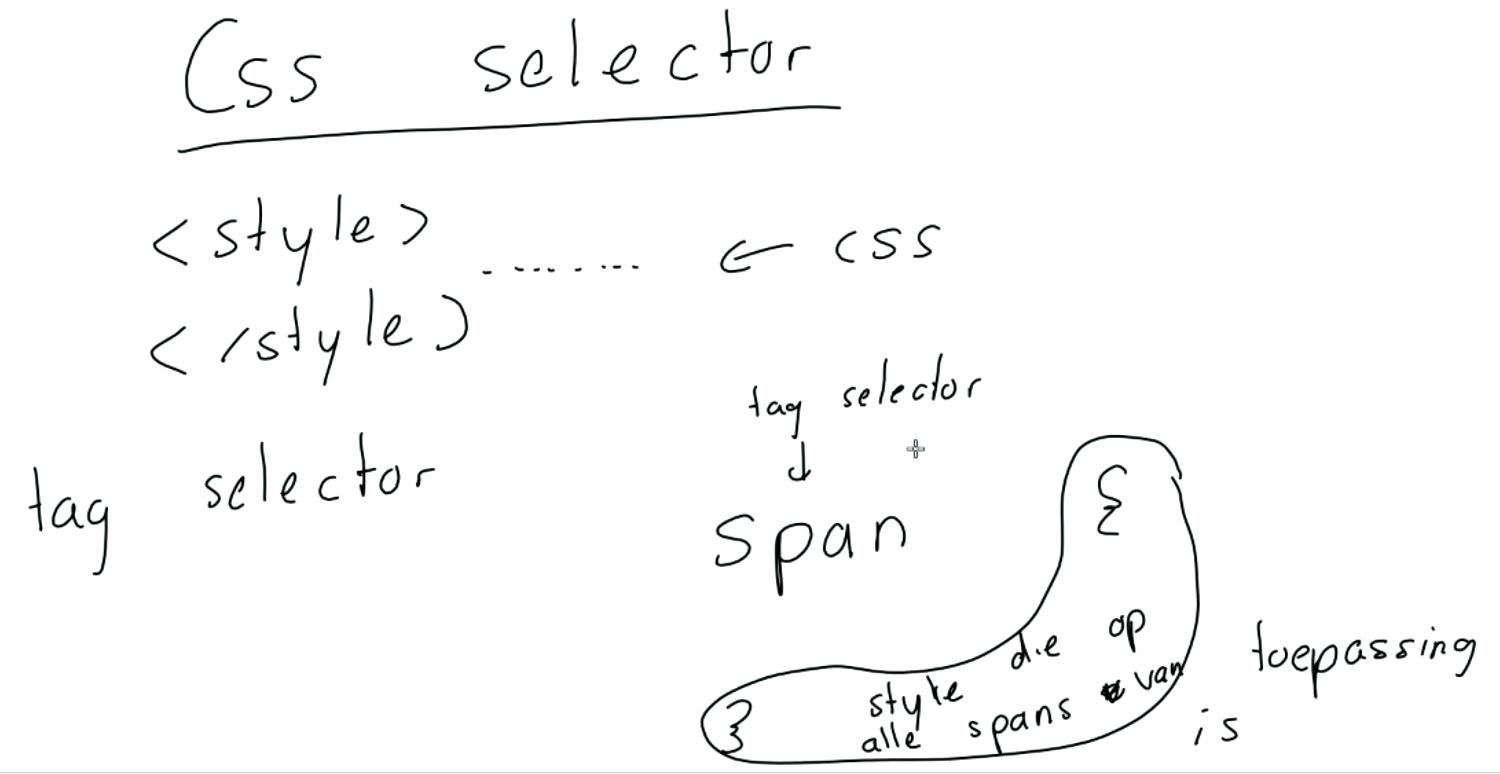 Css selector
<style>
........ ← css
</style>
tag selector
tag selector
↓
span {
style die op
alle spans van toepassing
is
}